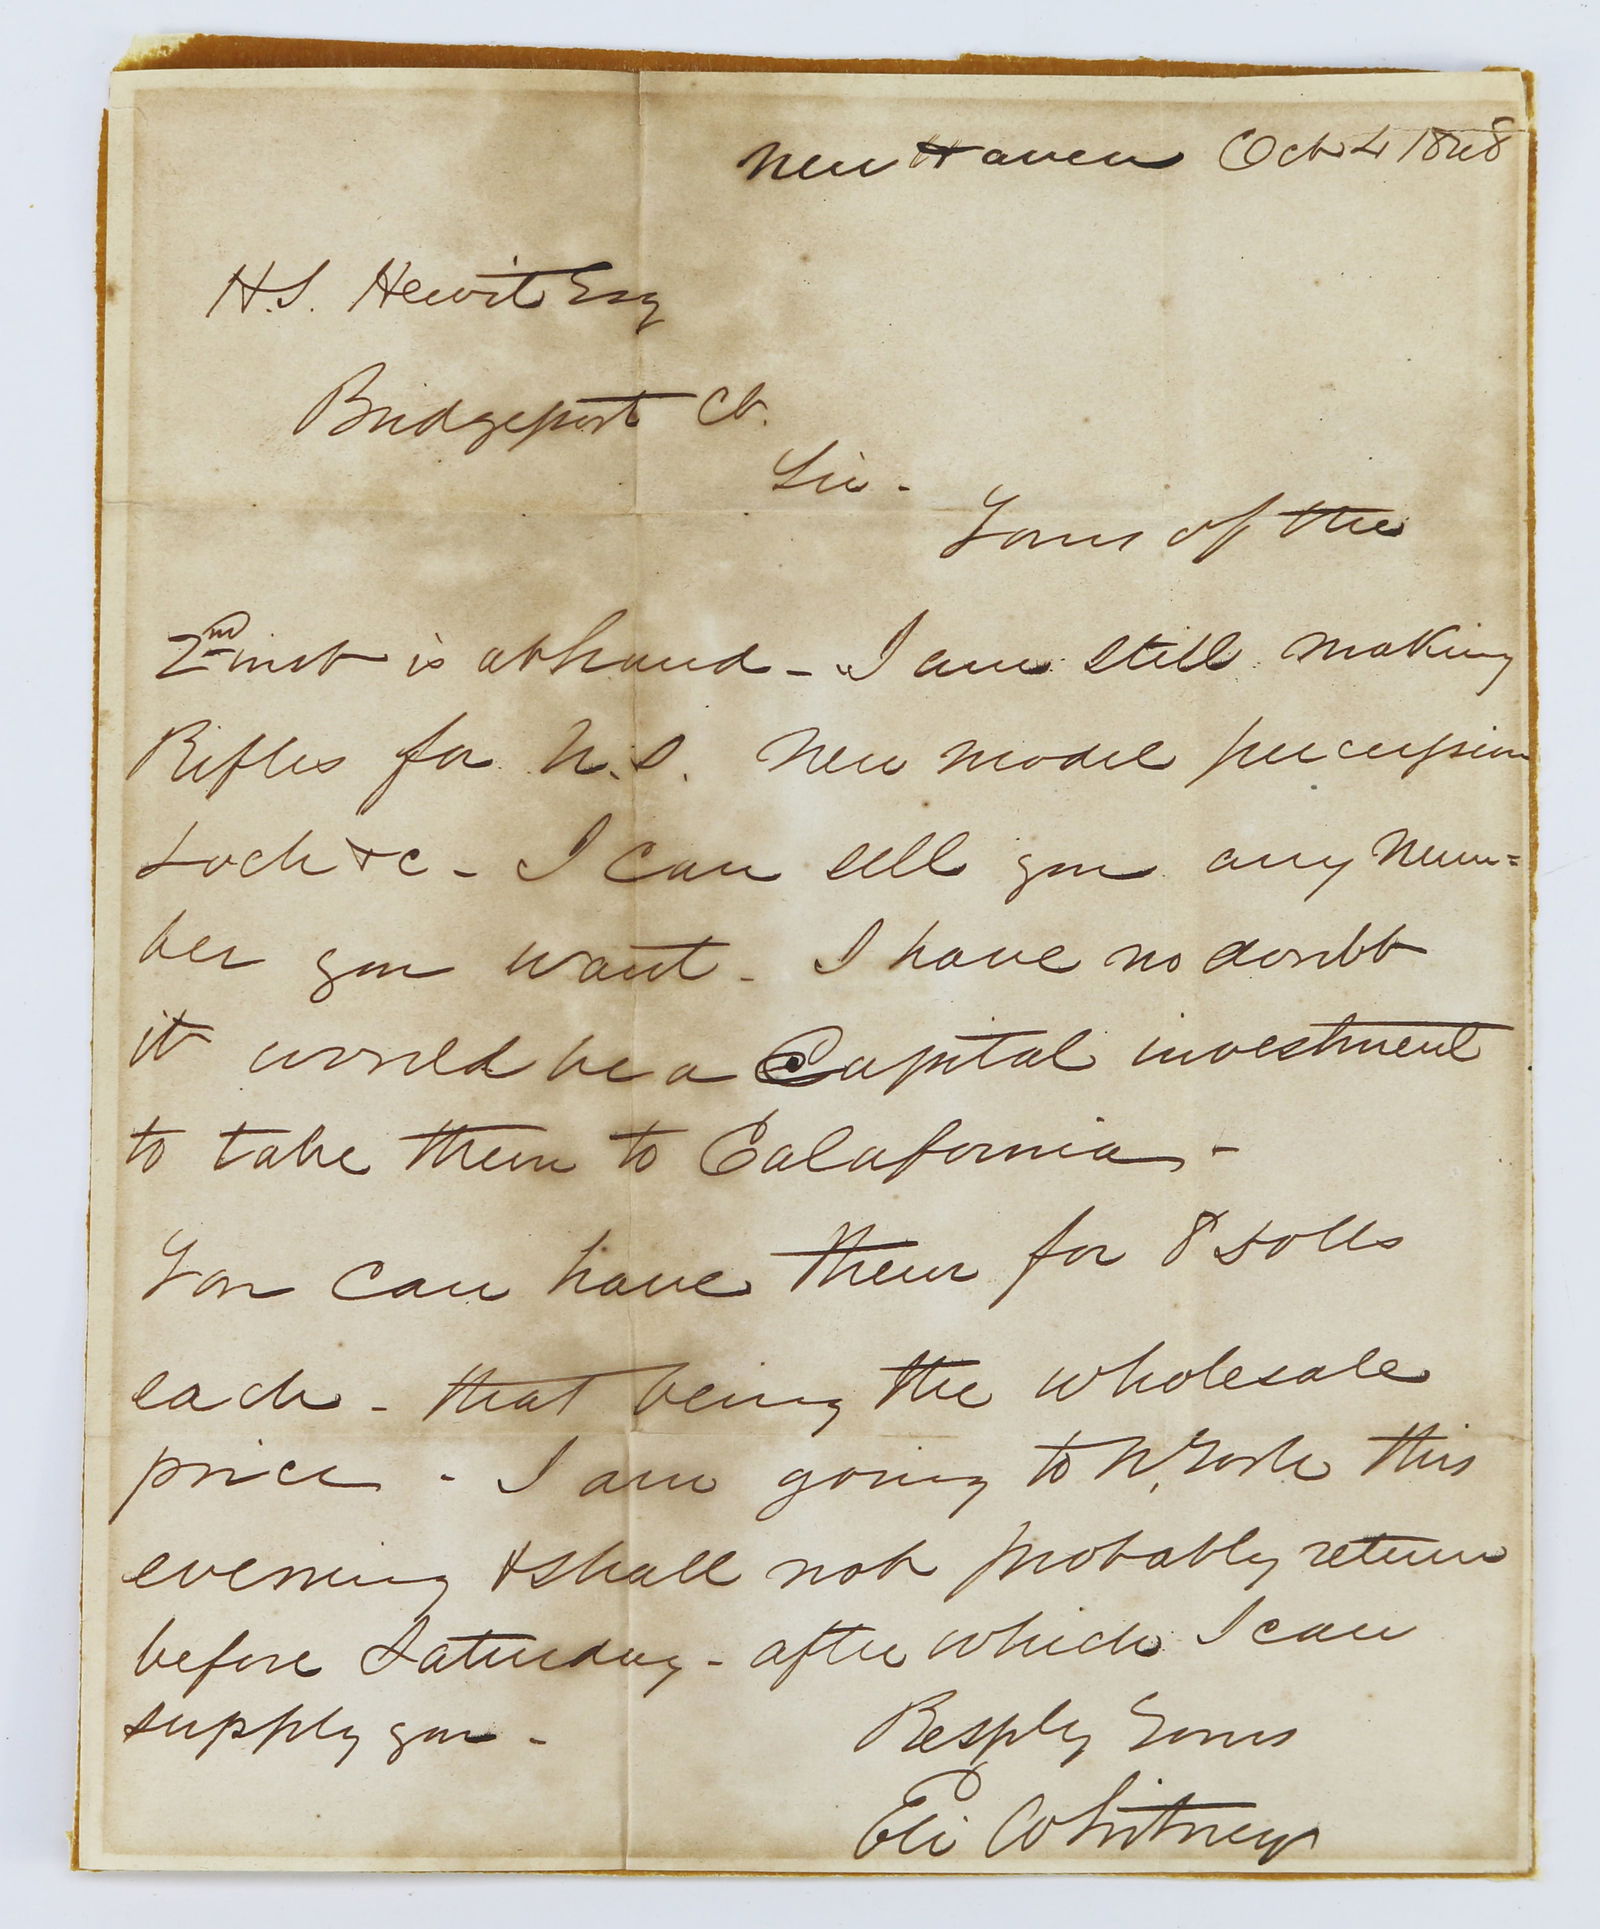 New Haven Oct 4 1848
H.S. Hewit Esq
Bridgeport Ct.
Sir -
Yours of the
2nd inst is at hand - I am still making
Rifles for U.S. New model percussion
Lock &c - I can sell you any num=
ber you want - I have no doubt
it would be a Capital investment
to take them to Calafornia -
You can have them for 8 Dolls
each - that being the wholesale
price - I am going to N. York this
evening & shall not probably return
before Saturday - after which I can
supply you -
Resply Yours
Eli Whitney